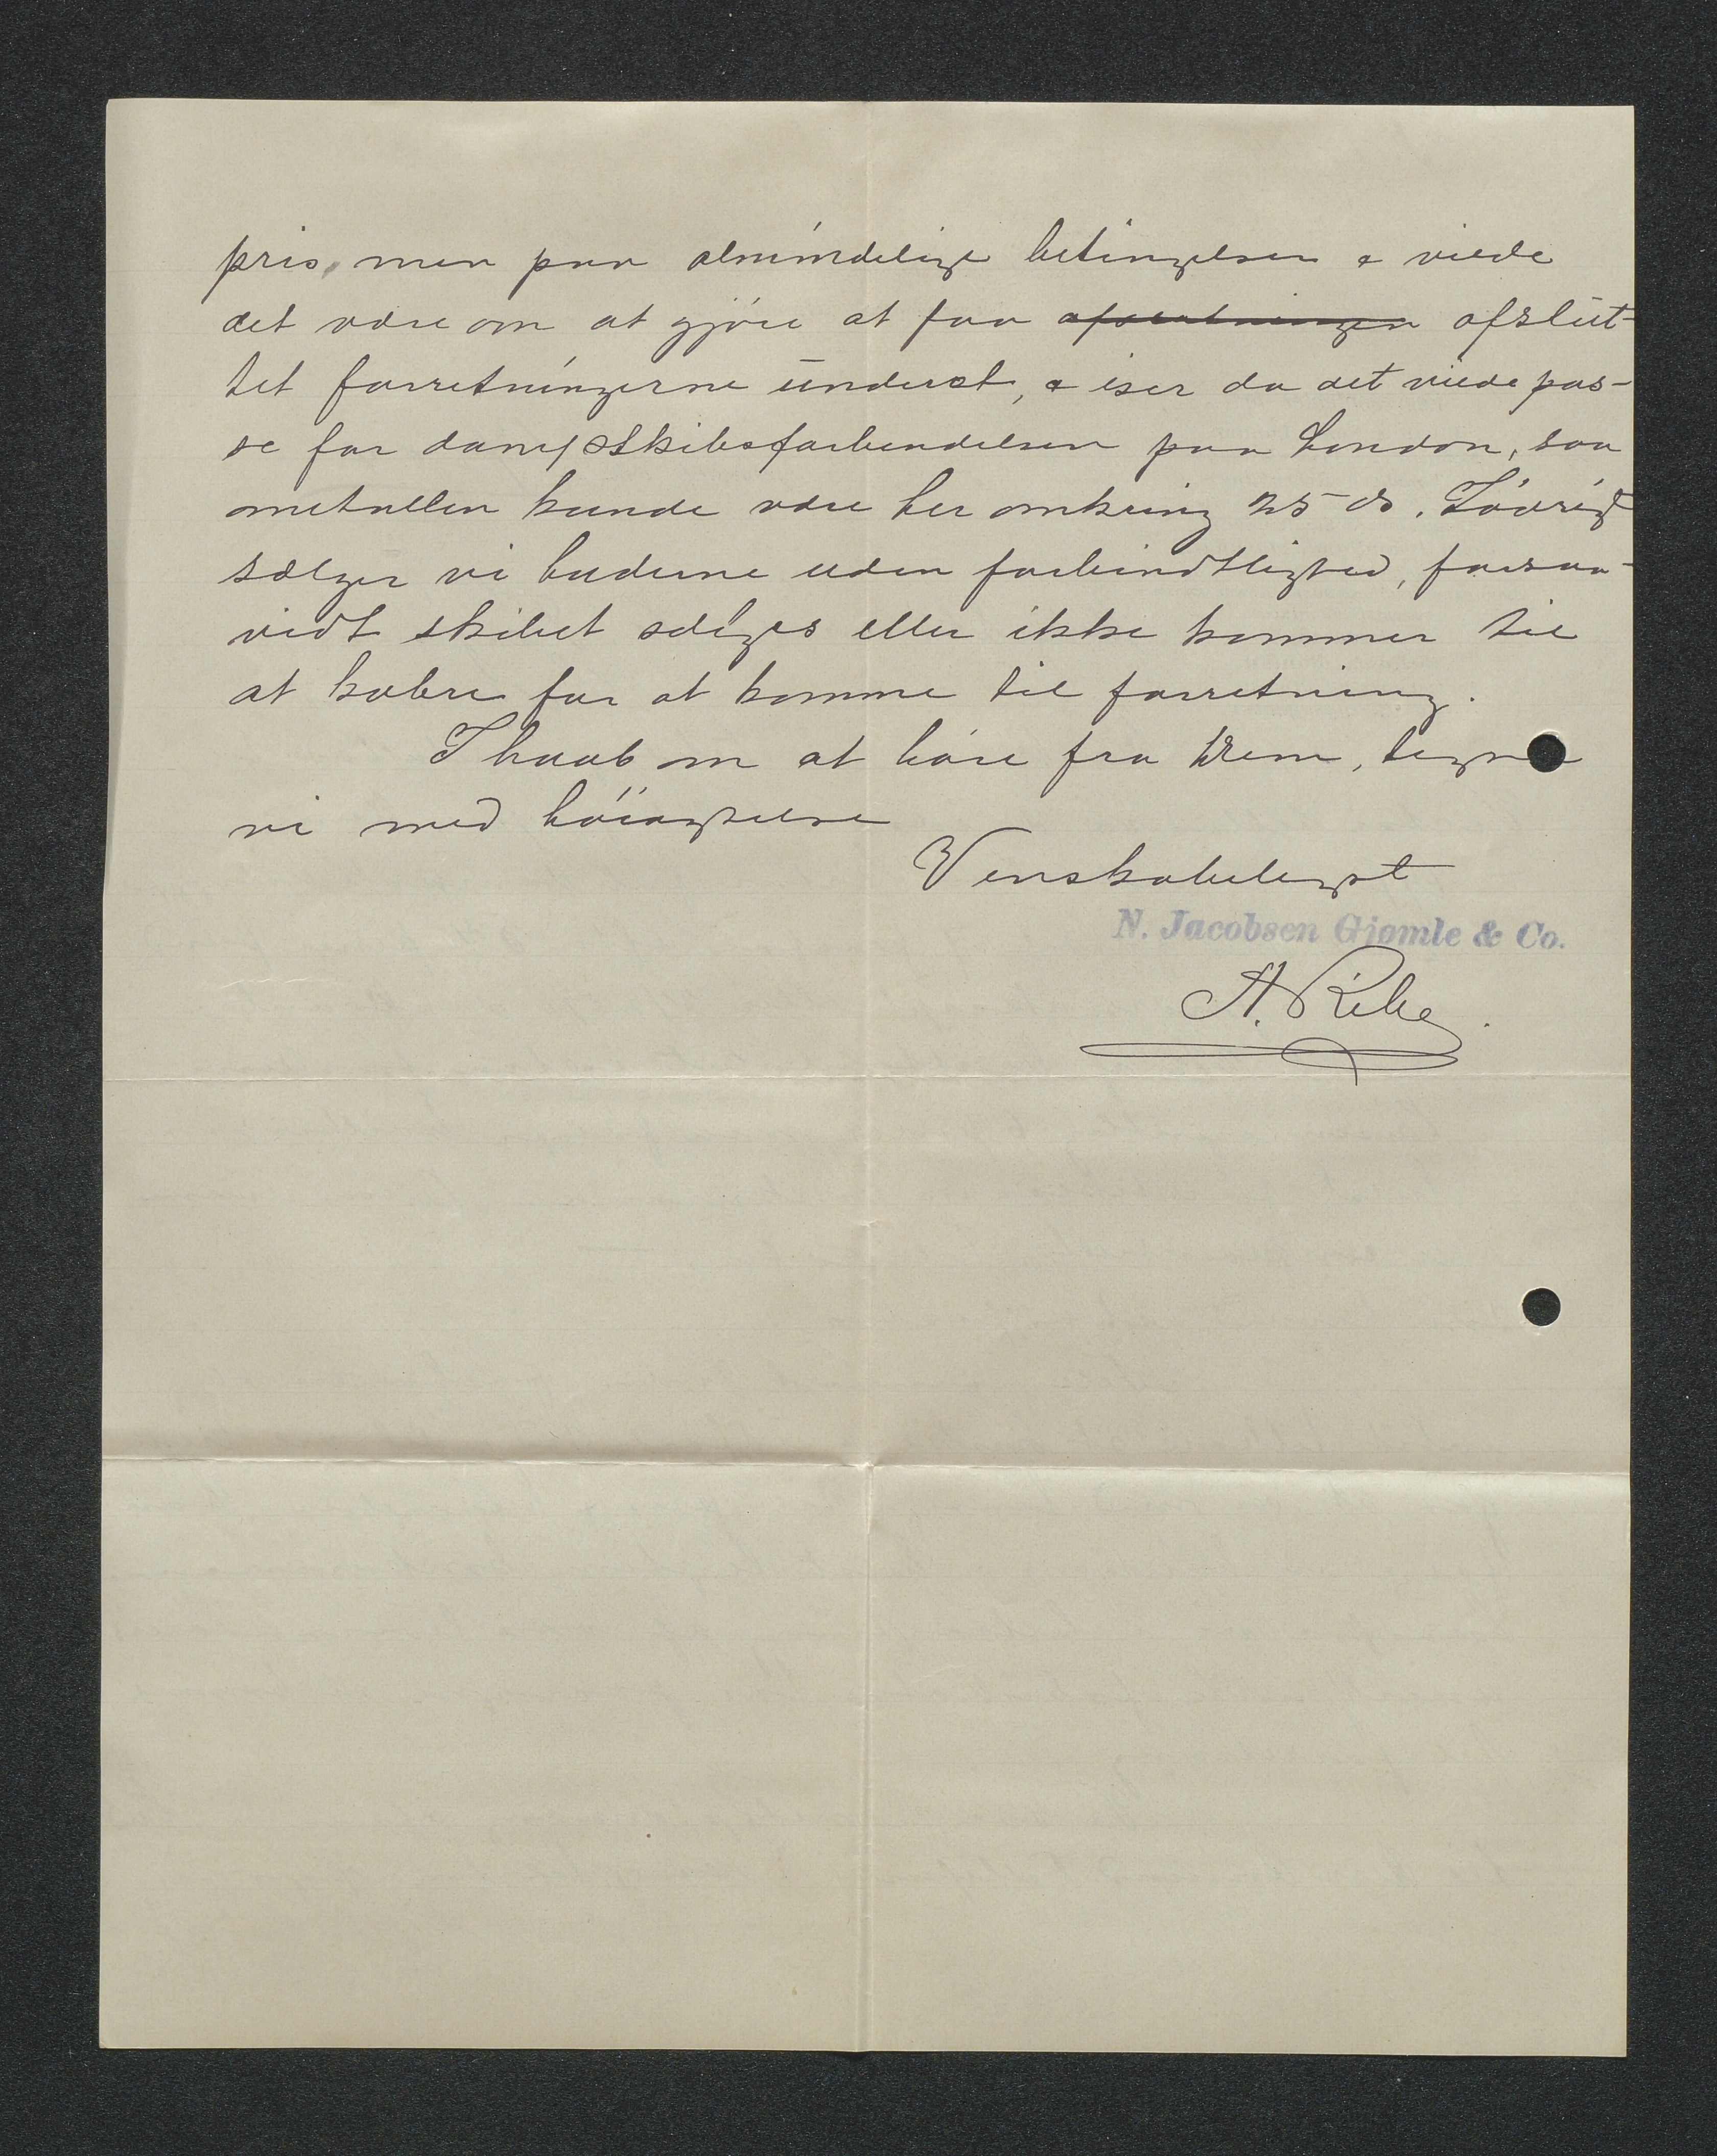 pris, men paa almindelige betingelser & vilde
det være om at gjöre at faa afslutningen afslut-
tet forretningerne underst, & især da det vilde pas-
se for dampskibsforbindelsen paa London, saa
metallen kunde være her omkring 25 ds. Iövrigt
sælger vi huderne uden forbindtlighed, forsaa-
vidt skibet sælges eller ikke kommer til
at kobre for at komme til forretning.
I haab om at höre fra Dem, tegne
vi med höiagtelse
Venskabeligst
N. Jacobsen Gjømle & Co.
A. Ribe.